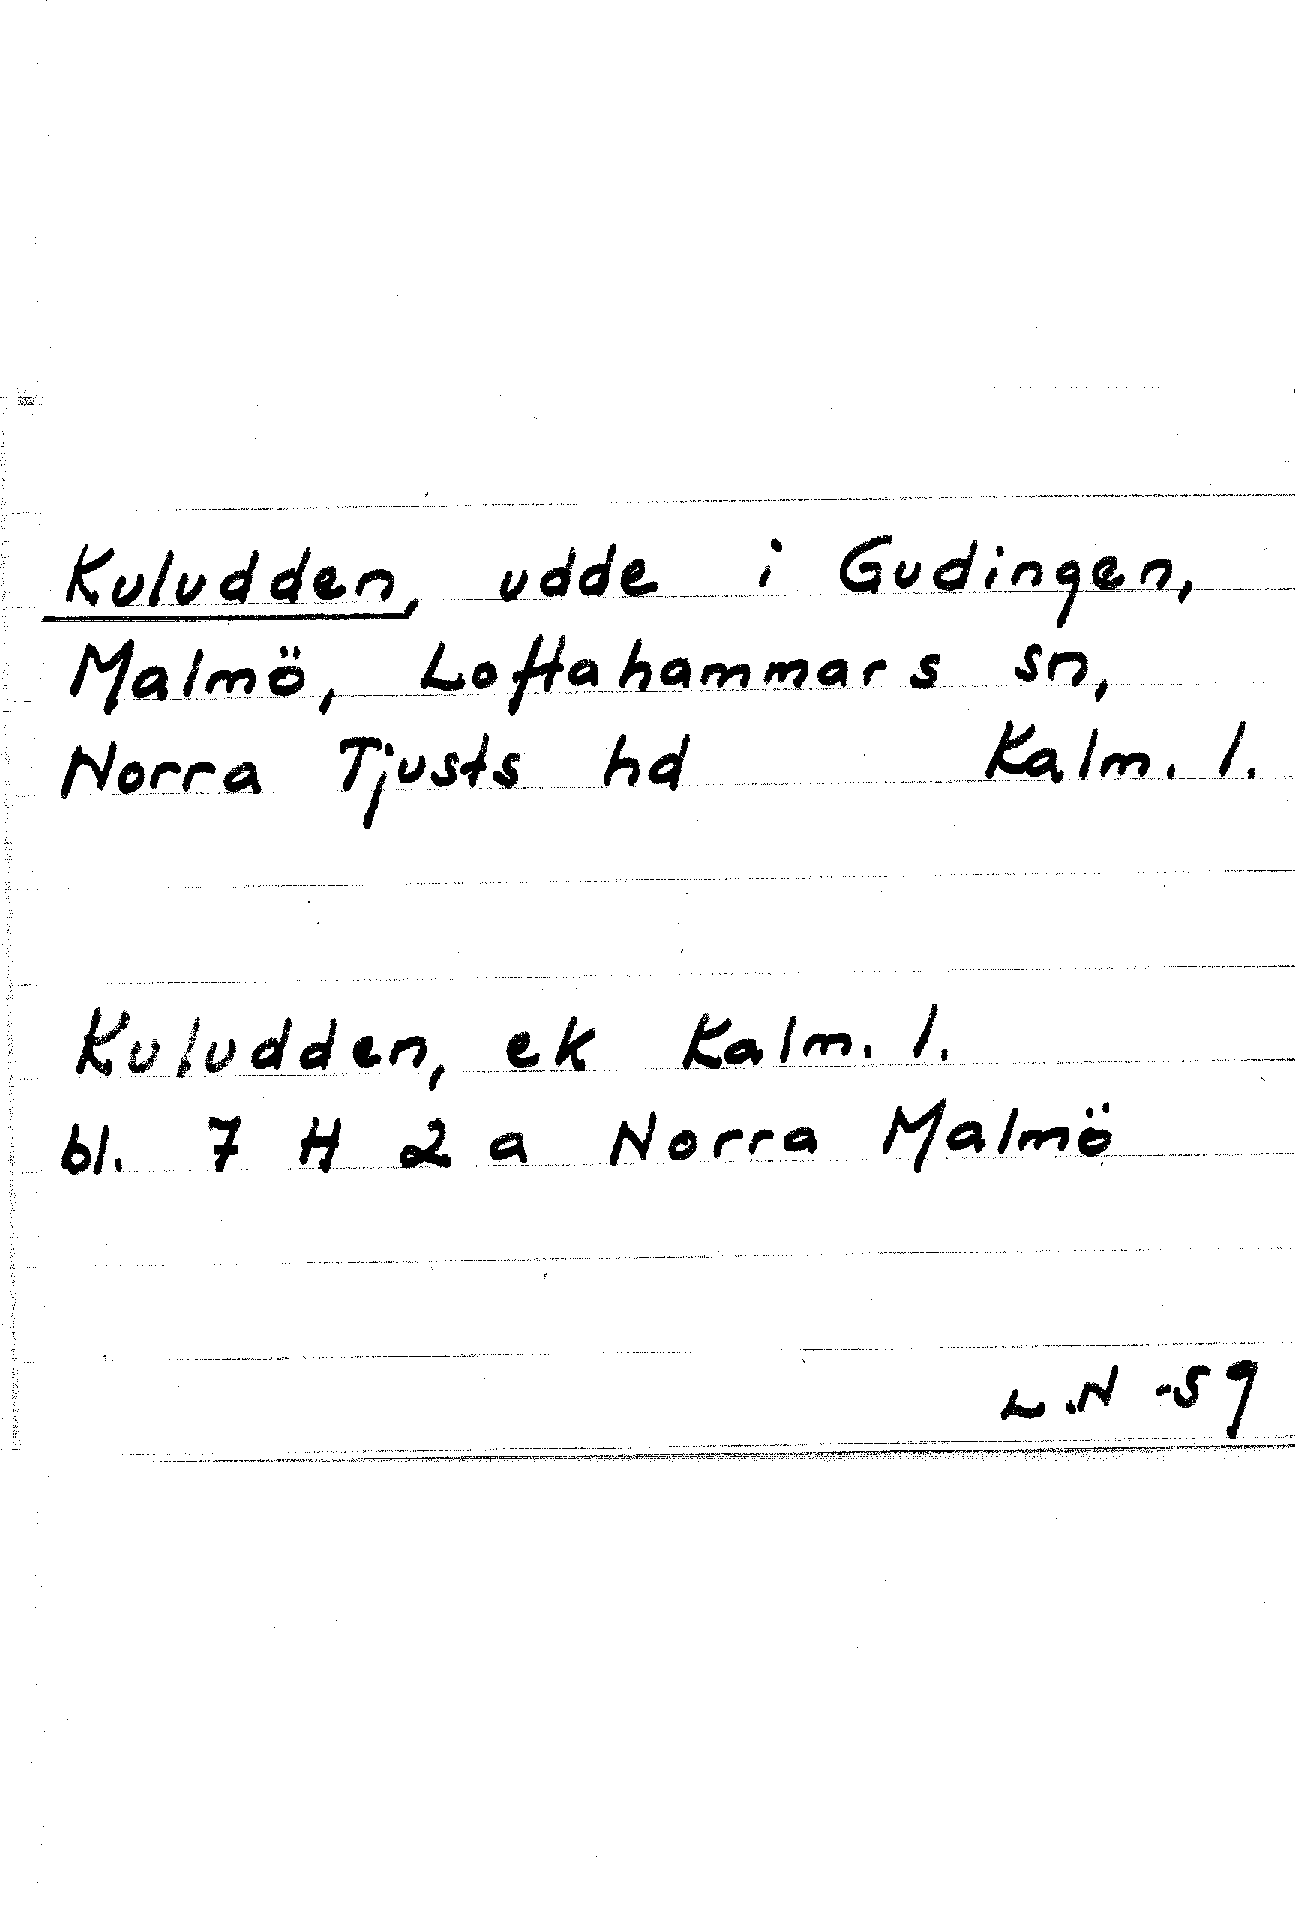 Kuludden, udde i Gudingen,
Malmö, Loftahammars sn,
Norra Tjusts hd Kalm. l.
Kuludden, ek Kalm. l.
bl. 7 H 2 a Norra Malmö
L.N -59